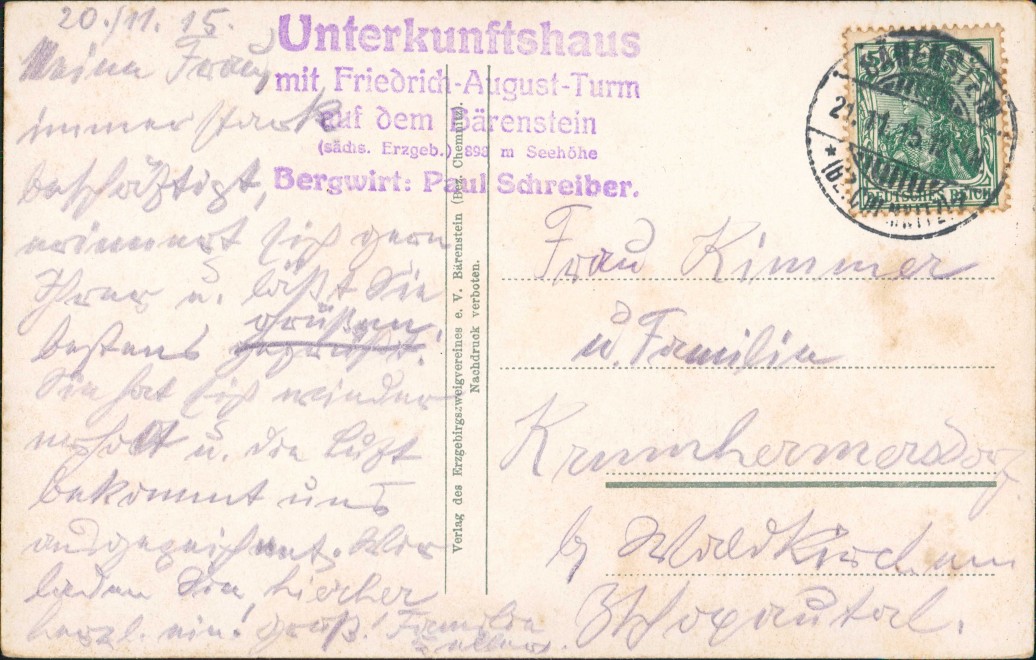 20./11. 15.
Meine Frau,
immer stark
beschäftigt,
erinnert sich gern
Ihrer u. läßt Sie
bestens grüßen.
Sie hat sich wieder
erholt u. die Luft
bekommt uns
ausgezeichnet. Wir
laden Sie hierher
herzl. ein! Familie
Unterkunftshaus
mit Friedrich-August-Turm
auf dem Bärenstein
(sächs. Erzgeb.) 893 m Seehöhe
Bergwirt: Paul Schreiber.
Verlag des Erzgebirgszweigvereines e. V. Bärenstein (Bez. Chemnitz).
Nachdruck verboten.
BÄRENSTEIN
21.11.15
(BZ. CHEMNITZ)
DEUTSCHES REICH
Frau Kimmer
u. Familie
Krumhermersdorf
b/ Waldkirchen
Zschopautal.